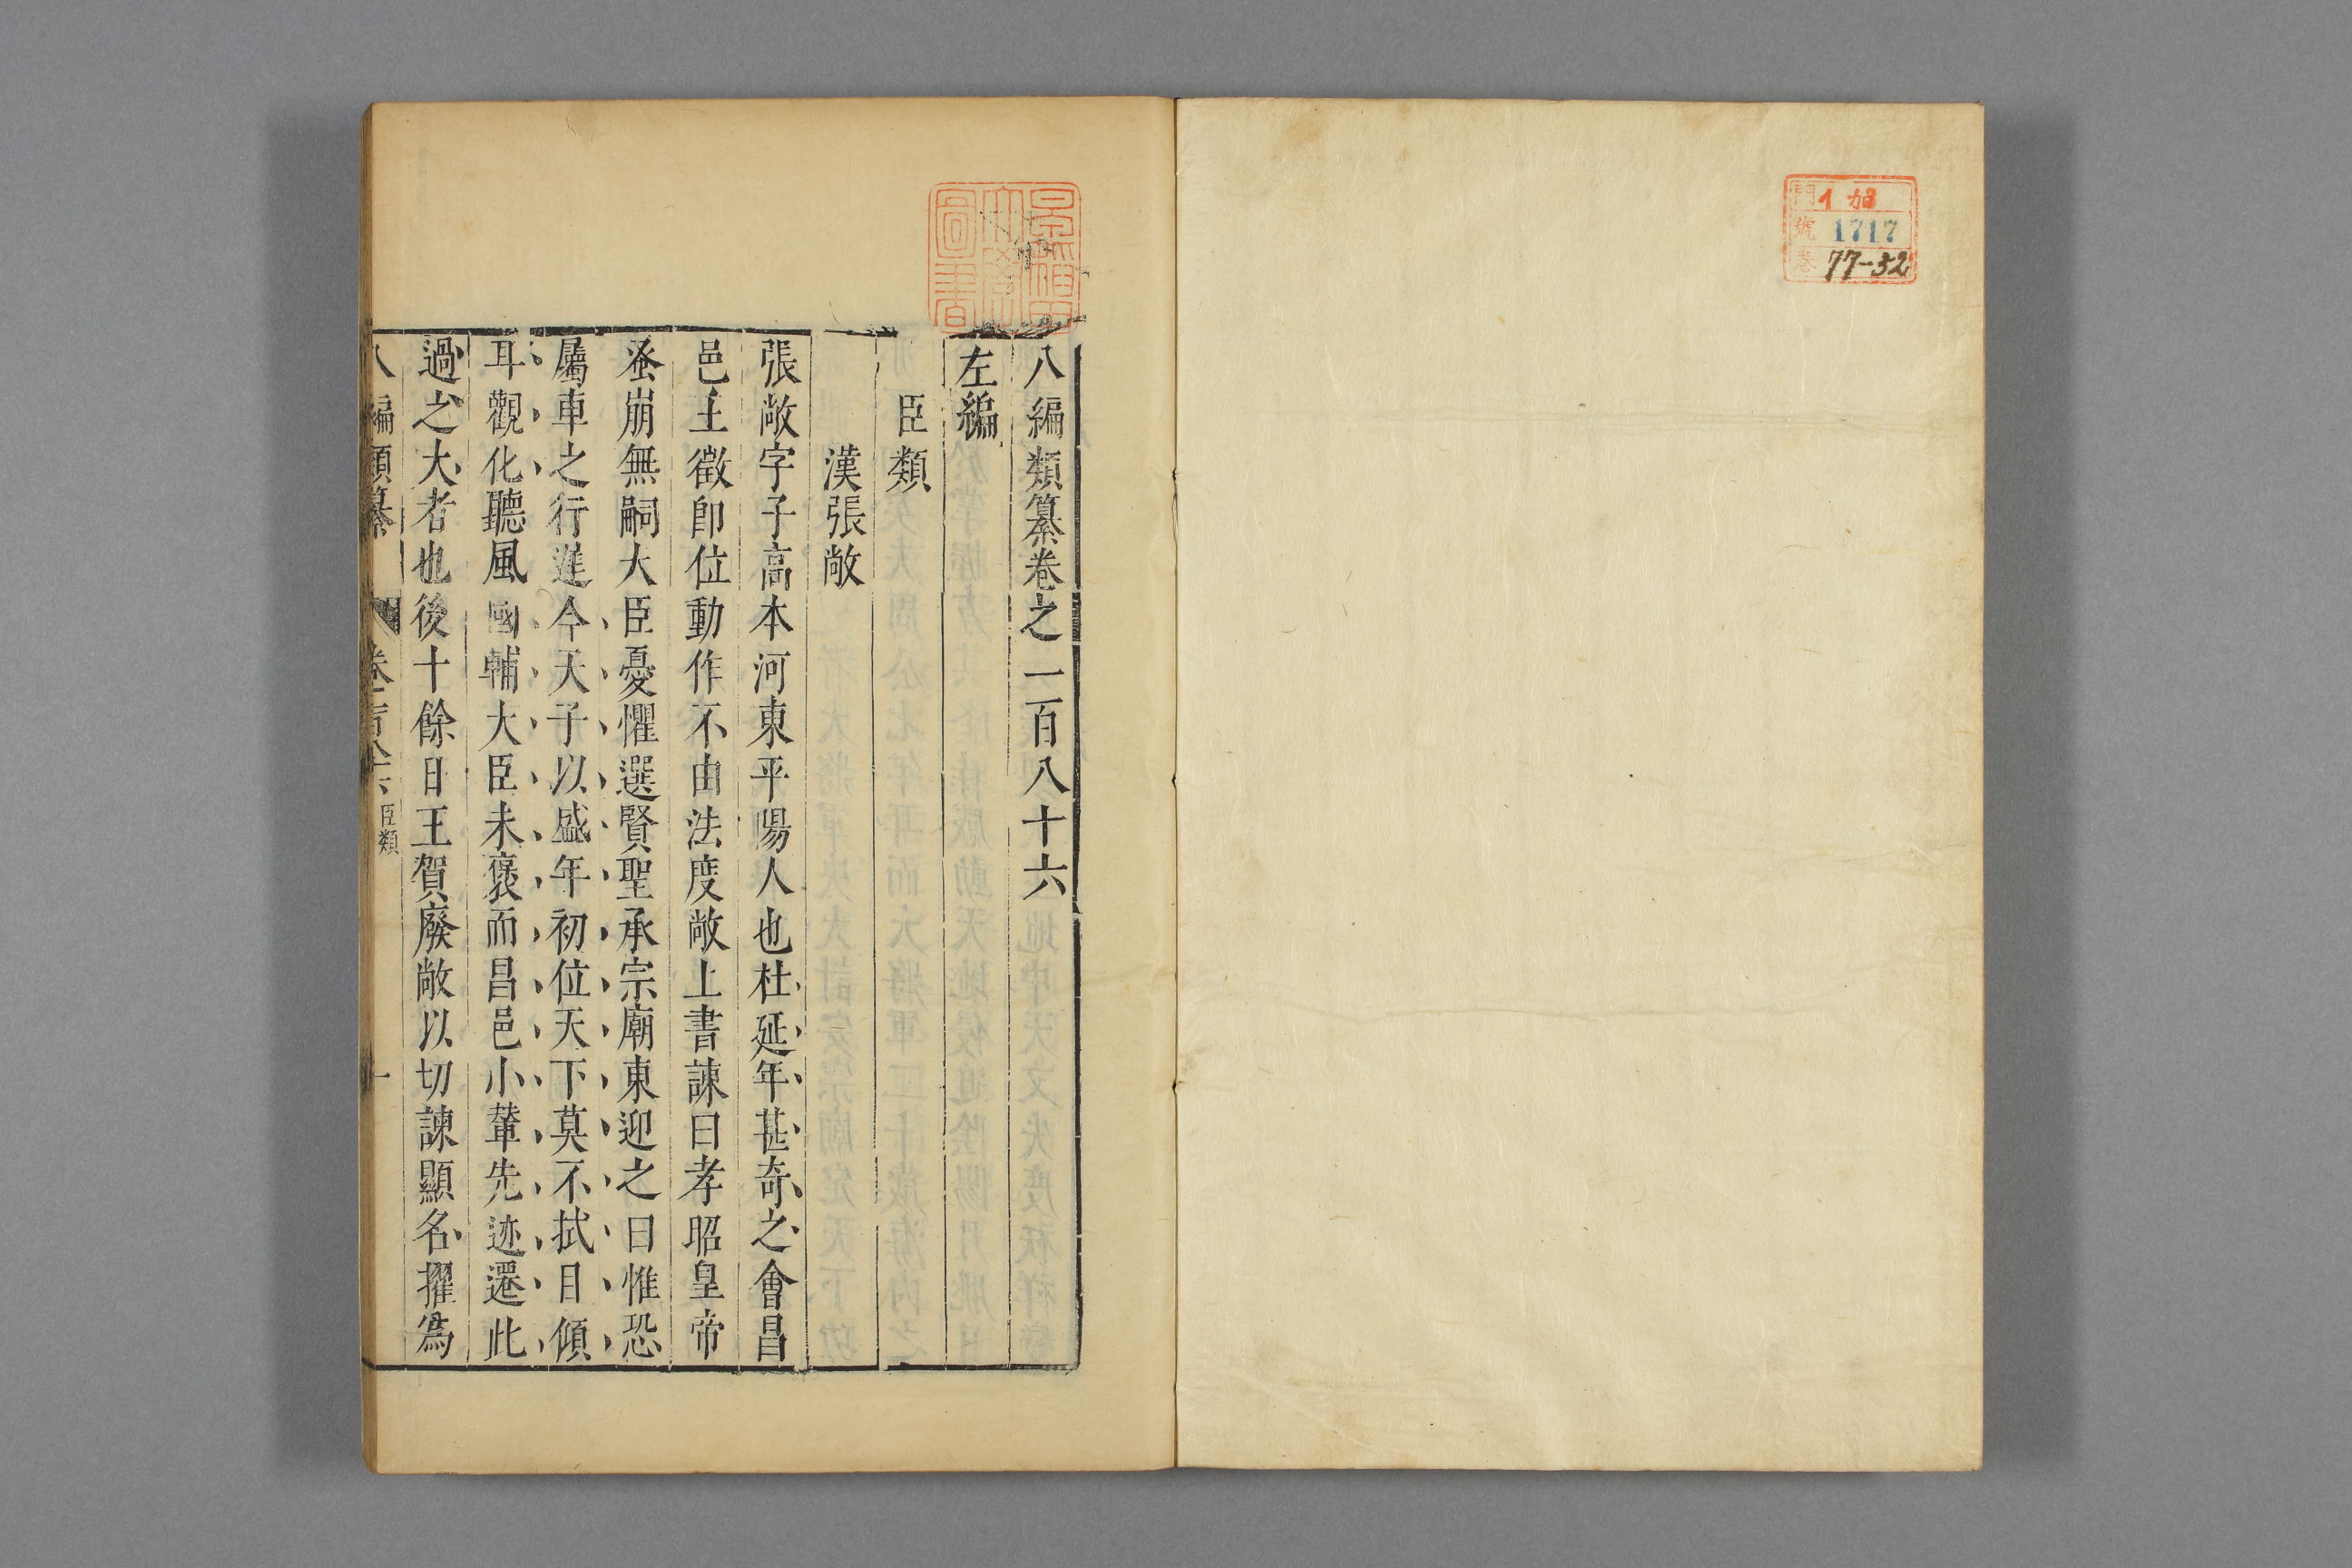 門 1 加
號 1717
卷 77-52
八編類纂卷之一百八十六
左編
臣類
漢張敞
張敞字子高本河東平陽人也杜延年甚奇之會昌
邑王徵卽位動作不由法度敞上書諫曰孝昭皇帝
蚤崩無嗣大臣憂懼選賢聖承宗廟東迎之日惟恐
屬車之行遲今天子以盛年初位天下莫不拭目傾
耳觀化聽風國輔大臣未褒而昌邑小輦先迁遷此
過之大者也後十餘日王賀廢敞以切諫顯名擢為
八編類纂 卷一百八十六 臣類 一